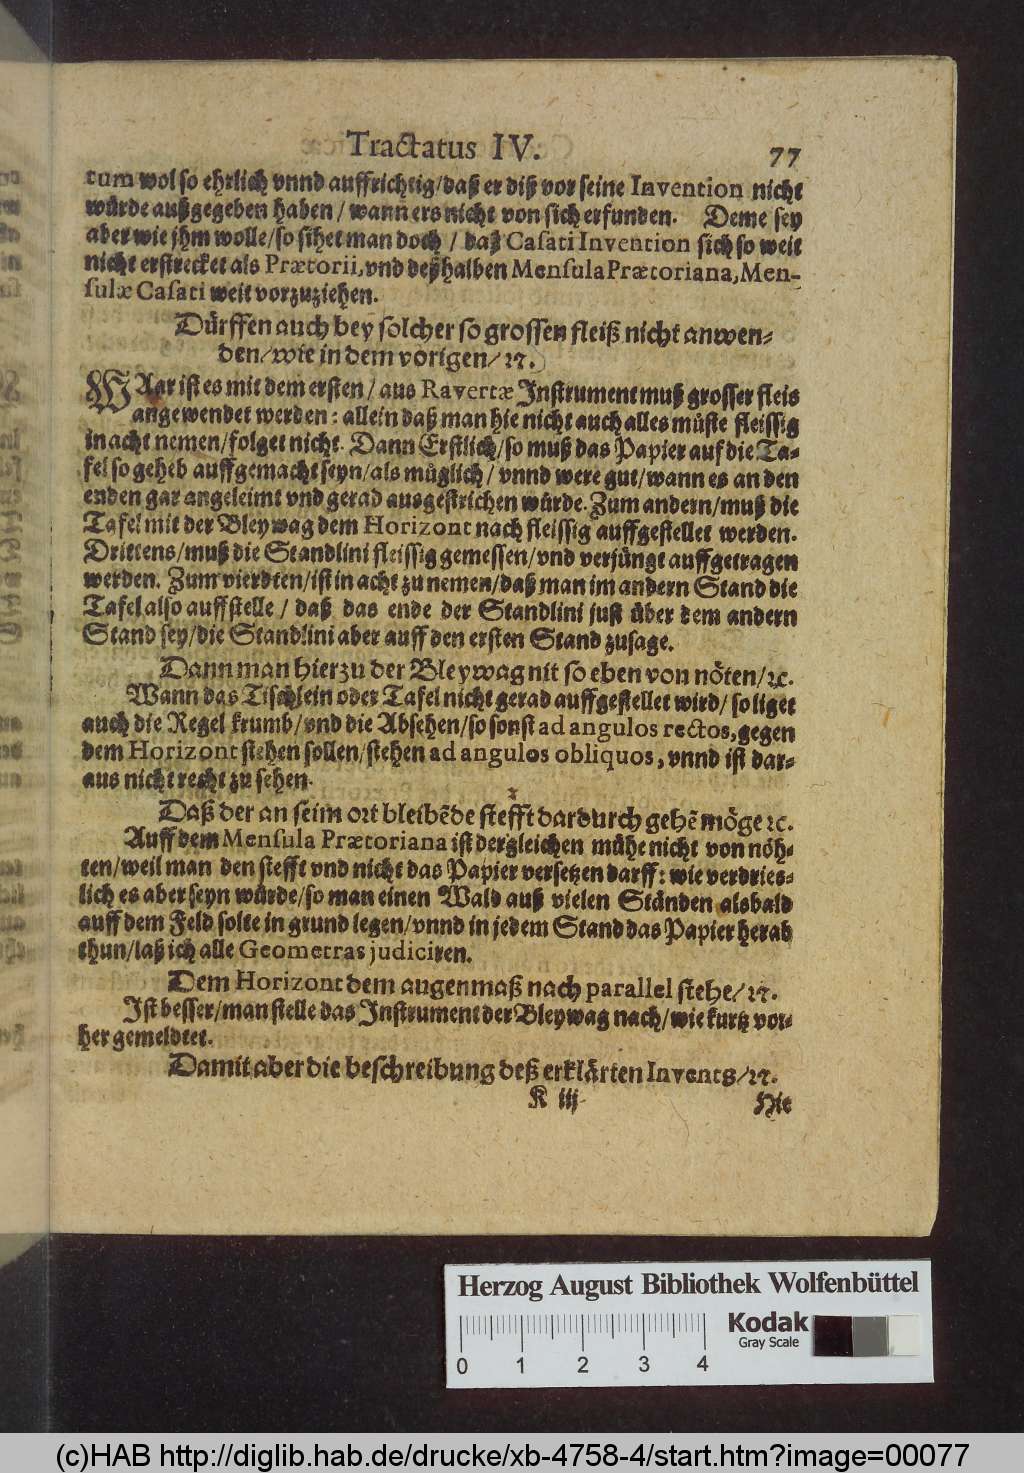 Tractatus IV.
77
tum wol so ehrlich vnnd auffrichtig/daß er diß vor seine Invention nicht
würde außgegeben haben / wann ers nicht von sich erfunden. Deme sey
aber wie jhm wolle/so sihet man doch / daß Casati Invention sich so weit
nicht erstrecket als Prætorii, vnd deßhalben Mensula Prætoriana, Men-
sulæ Casati weit vorzuziehen.
Dürffen auch bey solcher so grossen fleiß nicht anwen-
den/wie in dem vorigen/ꝛc.
WAar ist es mit dem ersten / aus Ravertæ Instrument muß grosser fleis
angewendet werden: allein daß man hie nicht auch alles müste fleissig
in acht nemen/folget nicht. Dann Erstlich/so muß das Papier auf die Ta-
fel so geheb auffgemacht seyn/als müglich / vnnd were gut/wann es an den
enden gar angeleimt vnd gerad ausgestrichen würde. Zum andern/muß die
Tafel mit der Bleywag dem Horizont nach fleissig auffgestellet werden.
Drittens/muß die Standlini fleissig gemessen/vnd verjüngt auffgetragen
werden. Zum vierdten/ist in acht zu nemen/daß man im andern Stand die
Tafel also auffstelle / daß das ende der Standlini just über dem andern
Stand sey/die Standlini aber auff den ersten Stand zusage.
Dann man hierzu der Bleywag nit so eben von nöten/ꝛc.
Wann das Tischlein oder Tafel nicht gerad auffgestellet wird/ so liget
auch die Regel krumb/vnd die Absehen/so sonst ad angulos rectos, gegen
dem Horizont stehen sollen/stehen ad angulos obliquos, vnnd ist dar-
aus nicht recht zu sehen.
Daß der an seim ort bleibẽde stefft dardurch gehẽ möge ꝛc.
Auff dem Mensula Prætoriana ist dergleichen mühe nicht von nöh-
ten/weil man den stefft vnd nicht das Papier versetzen darff: wie verdries-
lich es aber seyn würde/so man einen Wald auß vielen Ständen alsbald
auff dem Feld solte in grund legen/vnnd in jedem Stand das Papier herab
thun/laß ich alle Geometras judiciren.
Dem Horizont dem augenmaß nach parallel stehe/ꝛc.
Ist besser/man stelle das Instrument der Bleywag nach/wie kurtz vor-
her gemeldtet.
Damit aber die beschreibung deß erklärten Invents/ꝛc.
K iij
Hie
Herzog August Bibliothek Wolfenbüttel
Kodak
Gray Scale
0 1 2 3 4
(c)HAB http://diglib.hab.de/drucke/xb-4758-4/start.htm?image=00077